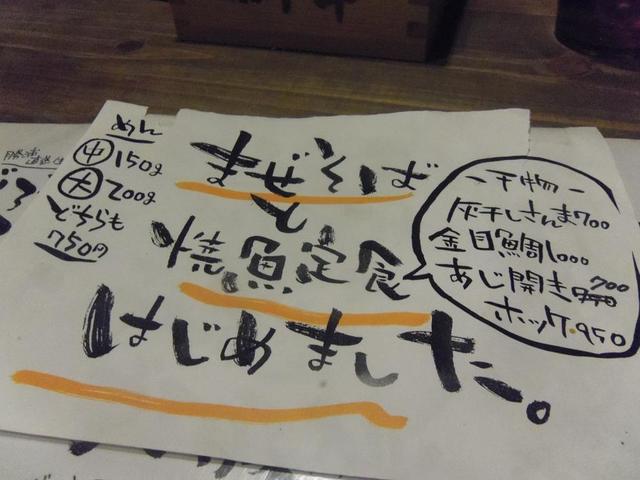 めん
中 150g
大 200g
どちらも
750円
まぜそば
と
焼魚定食
はじめました。
ー干物ー
灰干しさんま700
金目鯛1000
あじ開き700
ホッケ・950